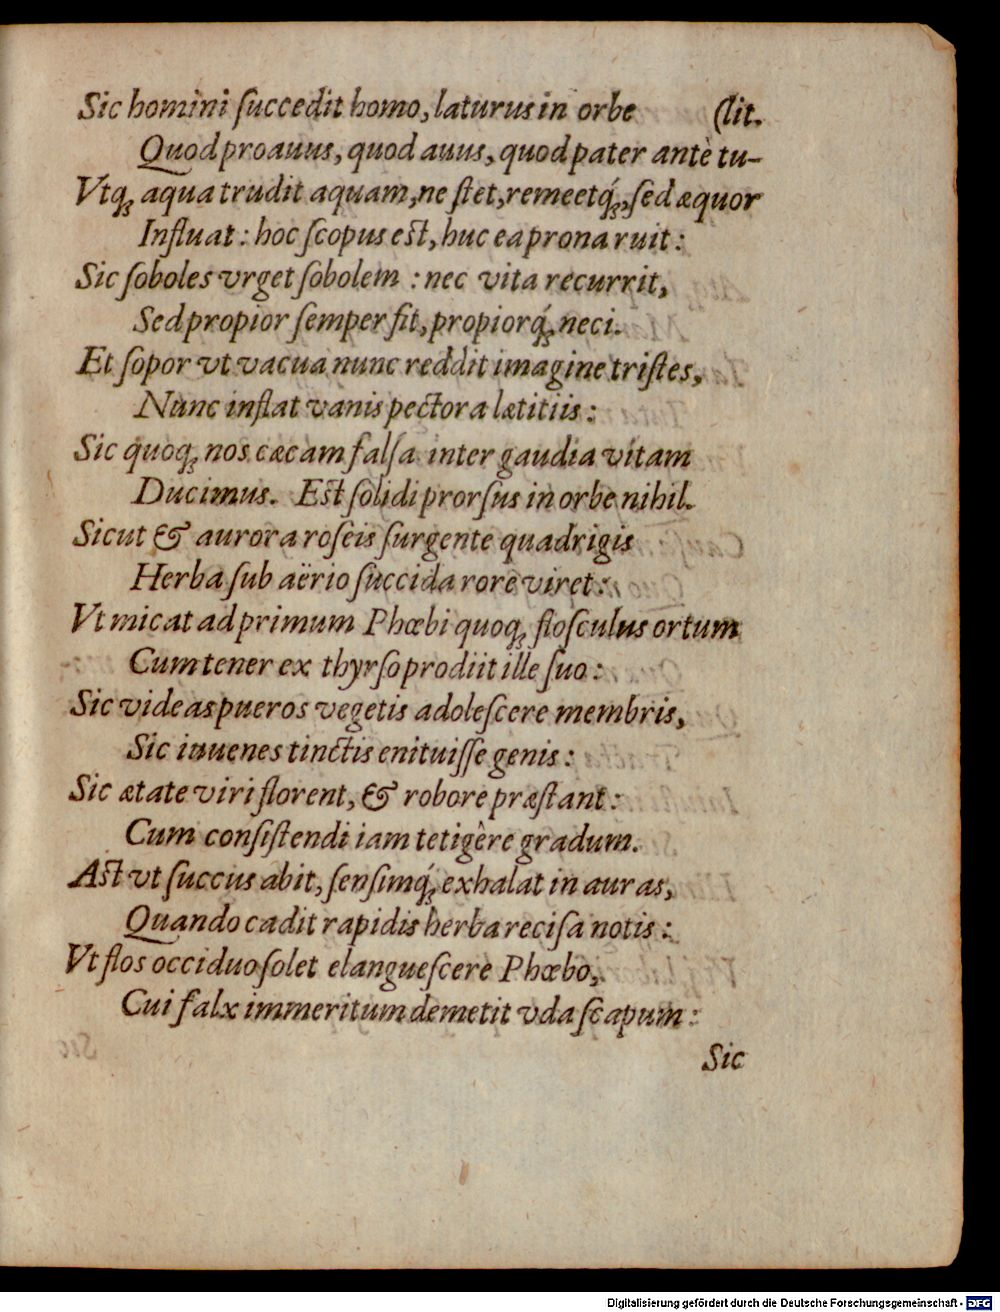 Sic homini ſuccedit homo, laturus in orbe (lit.
Quod proauus, quod auus, quod pater antè tu-
Vtq́ꝫ aqua trudit aquam, ne ſtet, remeetq́ꝫ, ſed æquor
Influat: hoc ſcopus eſt, huc ea prona ruit:
Sic ſoboles vrget ſobolem: nec vita recurrit,
Sed propior ſemper fit, propiorq́ꝫ neci.
Et ſopor vt vacua nunc reddit imagine triſtes,
Nunc inflat vanis pectora lætitiis:
Sic quoqꝫ nos cæcam falſa inter gaudia vitam
Ducimus. Eſt ſolidi prorſus in orbe nihil.
Sicut & aurora roſeis ſurgente quadrigis
Herba ſub aërio ſuccida rore viret:
Vt micat ad primum Phœbi quoqꝫ floſculus ortum
Cum tener ex thyrſo prodiit ille ſuo:
Sic videas pueros vegetis adoleſcere membris,
Sic iuuenes tinctis enituiſſe genis:
Sic ætate viri florent, & robore præſtant:
Cum conſiſtendi iam tetigêre gradum.
Aſt vt ſuccus abit, ſenſimq́ꝫ exhalat in auras,
Quando cadit rapidis herba reciſa notis:
Vt flos occiduo ſolet elangueſcere Phœbo,
Cui falx immeritum demetit vda ſcapum:
Sic
Digitalisierung gefördert durch die Deutsche Forschungsgemeinschaft - DFG